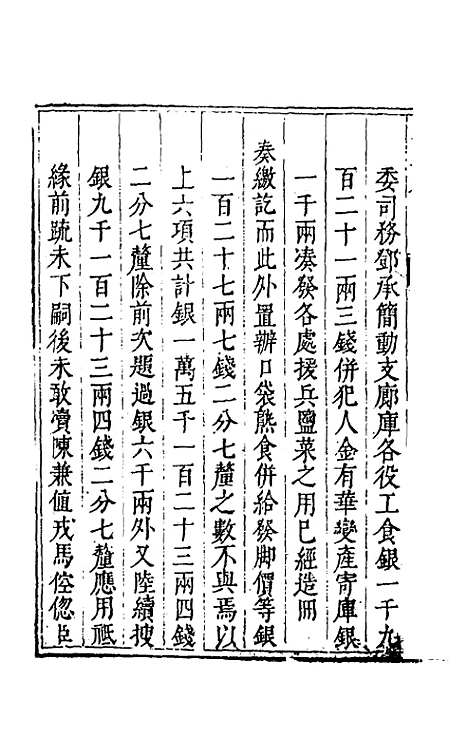 委司務鄧承簡動支廊庫各役工食銀一千九
百二十一兩三錢併犯人金有華變產寄庫銀
一千兩凑發各處援兵鹽菜之用已經造冊
奏繳訖而此外置辦口袋熊食併給發脚價等銀
一百二十七兩七錢二分七釐之數不與焉以
上六項共計銀一萬五千一百二十三兩四錢
二分七釐除前次題過銀六千兩外又陸續搜
銀九千一百二十三兩四錢二分七釐應用祗
緣前疏未下嗣後未敢賣陳兼值戎馬倥偬臣